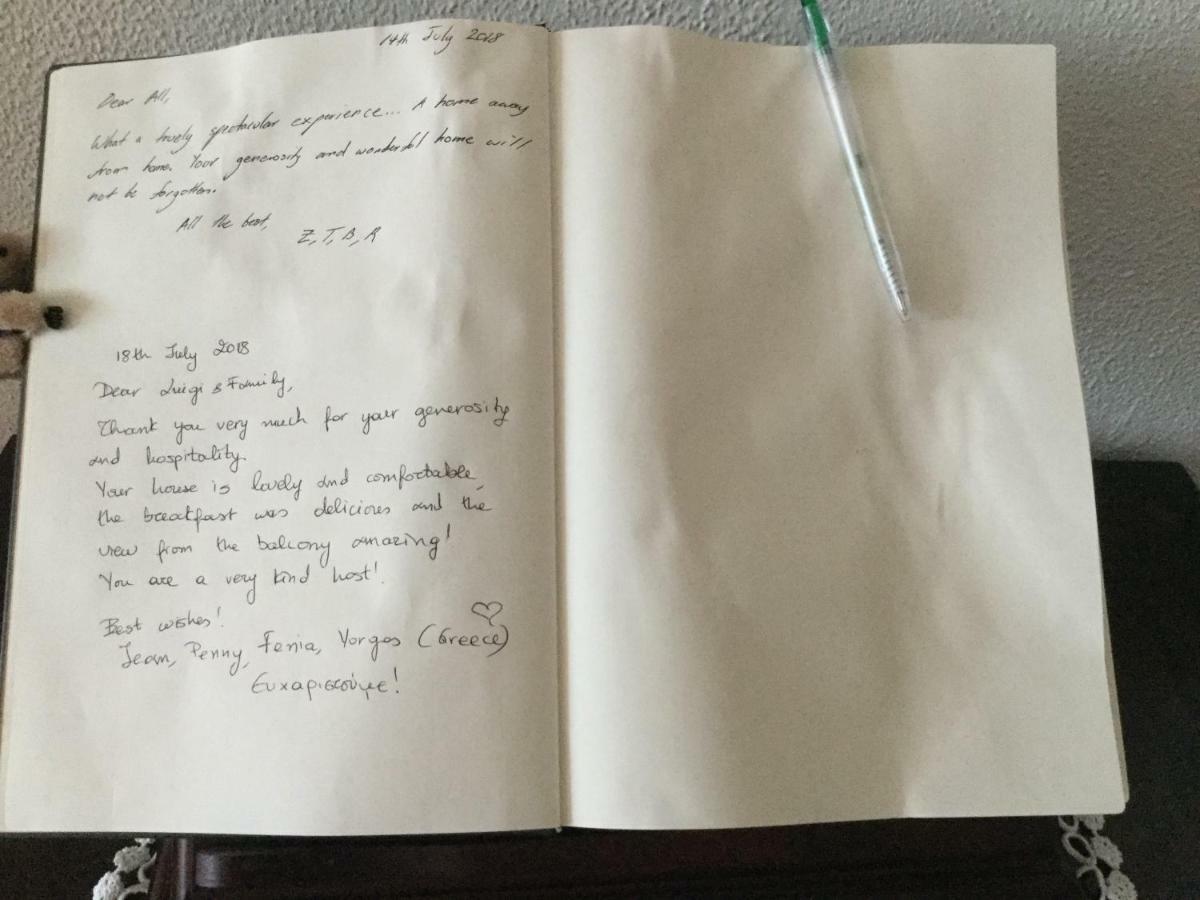 14th July 2018
Dear All,
What a truely spectacular experience... A home away
from home. Your generosity and wonderful home will
not be forgotten.
All the best,
Z, T, B, R
18th July 2018
Dear Luigi & Family,
Thank you very much for your generosity
and hospitality.
Your house is lovely and comfortable,
the breakfast was delicious and the
view from the balcony amazing!
You are a very kind host!
Best wishes!
Jean, Penny, Fenia, Yorgos (Greece)
Ευχαριστούμε!